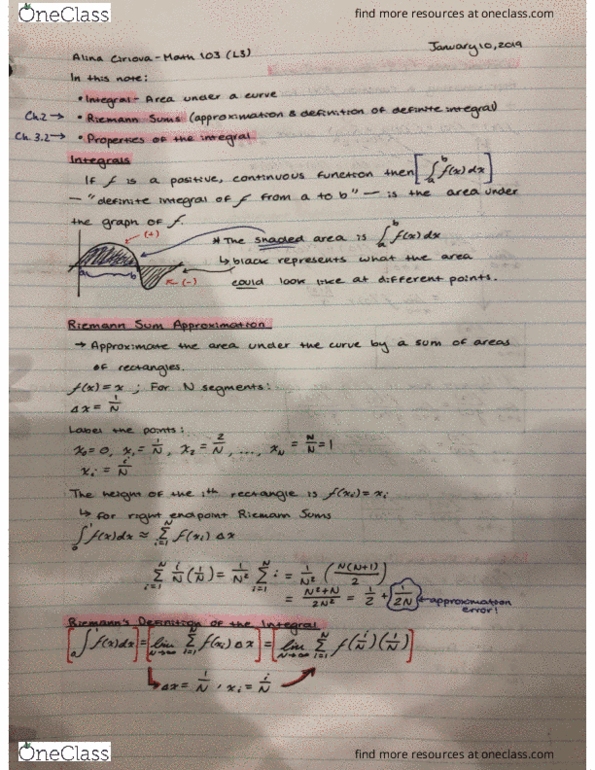 OneClass
find more resources at oneclass.com
January 10, 2019
Alina Ciriova - Math 103 (L3)
In this note:
• Integral - Area under a curve
Ch.2 → • Riemann Sums (approximation & definition of definite integral)
Ch. 3.2 → • Properties of the integral
Integrals
If f is a positive, continuous function then [∫_a^b f(x)dx]
— "definite integral of f from a to b" — is the area under
the graph of f.
(+)
* The shaded area is ∫_a^b f(x)dx
a b
↳ black represents what the area
(-)
could look like at different points.
Riemann Sum Approximation
→ Approximate the area under the curve by a sum of areas
of rectangles.
f(x) = x ; For N segments:
Δx = 1/N
Label the points:
x₀ = 0, x₁ = 1/N, x₂ = 2/N, ..., x_N = N/N = 1
x_i = i/N
The height of the ith rectangle is f(x_i) = x_i
↳ for right endpoint Riemann Sums
∫_0^1 f(x)dx ≈ Σ_{i=1}^N f(x_i) Δx
Σ_{i=1}^N i/N (1/N) = 1/N² Σ_{i=1}^N i = 1/N² (N(N+1)/2)
= N²+N/2N² = 1/2 + 1/2N ← approximation error!
Riemann's Definition of the Integral
[∫_0^1 f(x)dx] = [lim_{N→∞} Σ_{i=1}^N f(x_i) Δx] = [lim_{N→∞} Σ_{i=1}^N f(i/N)(1/N)]
↳ Δx = 1/N, x_i = i/N
OneClass
find more resources at oneclass.com